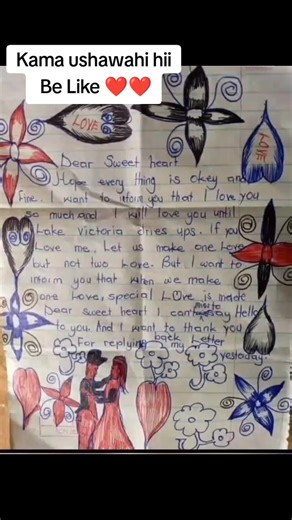 Kama ushawahi hii
Be Like ❤️❤️
LOVE
LOVE
Dear Sweet heart
Hope every thing is okey and
fine. I want to inform you that I love you
so much and I will love you until
Lake Victoria dries ups. If you
Love me. Let us make one Love
but not two Love. But I want to
inform you that when we make
one Love, special LOve is made
Dear sweet heart I can miss to say Hello
to you. And I want to thank you
For replying back my Letter
yestaday.